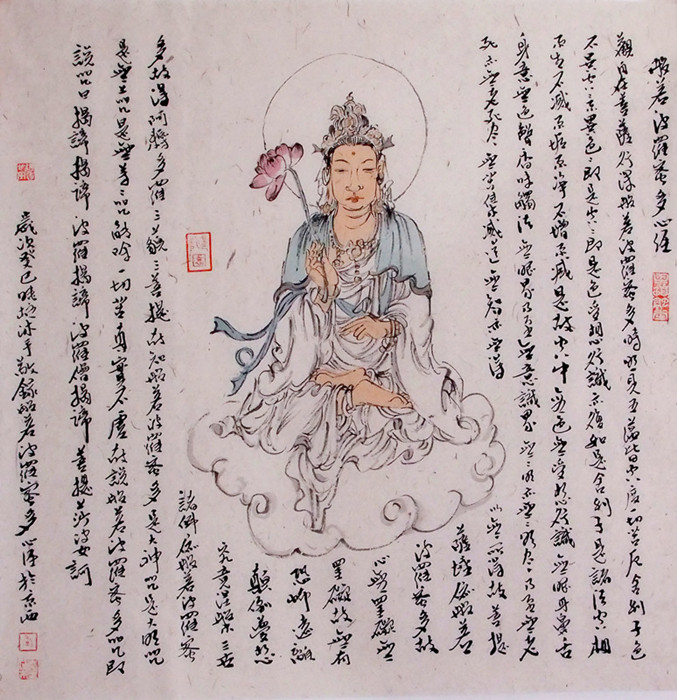 般若波羅蜜多心經
觀自在菩薩行深般若波羅蜜多時照見五蘊皆空度一切苦厄舍利子色
不異空々不異色々即是空々即是色受想行識亦復如是舍利子是諸法空相
不生不滅不垢不淨不增不減是故空中無色無受想行識無眼耳鼻舌
身意無色聲香味觸法無眼界乃至無意識界無々明亦無々明盡乃至無老
死亦無老死盡無苦集滅道無智亦無得
以無所得故菩提
薩埵依般若
波羅蜜多故
心無罣礙無
罣礙故無有
恐怖遠離
顛倒夢想
究竟涅槃三世
諸佛依般若波羅蜜
多故得阿耨多羅三藐三菩提故知般若波羅蜜多是大神咒是大明咒
是無上咒是無等々咒能除一切苦真實不虛故說般若波羅蜜多咒即
說咒曰揭諦揭諦波羅揭諦波羅僧揭諦菩提莎婆訶
歲次癸巳沐手敬錄般若波羅蜜多心經於京西